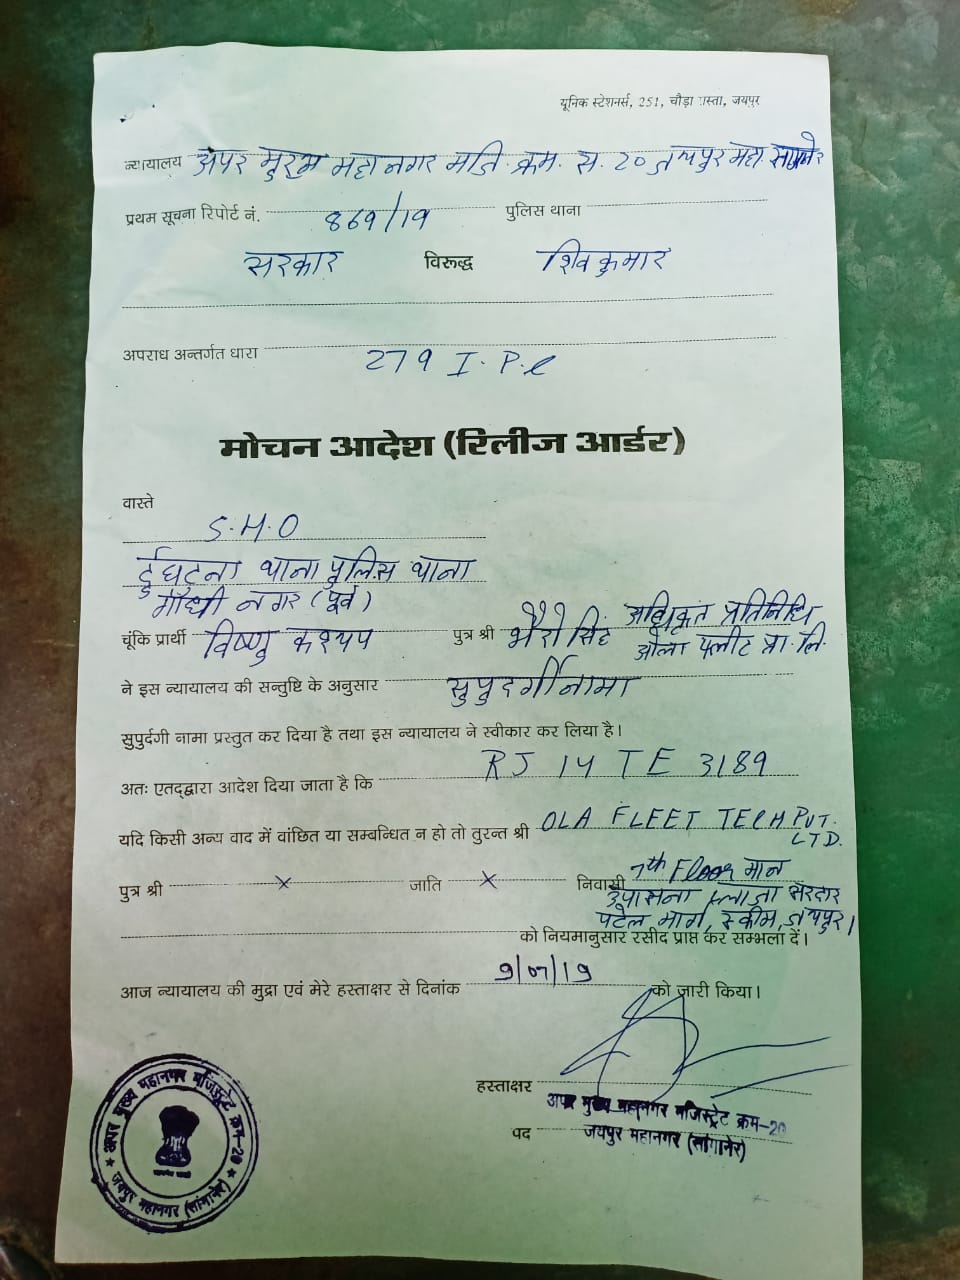 यूनिक स्टेशनर्स, 251, चौड़ा रास्ता, जयपुर
न्यायालय अपर मुख्य महानगर मजि. क्रम. स. 20 जयपुर महा. सांगानेर
प्रथम सूचना रिपोर्ट नं. 869/19 पुलिस थाना
सरकार विरूद्ध शिवकुमार
अपराध अन्तर्गत धारा 279 I.P.C
मोचन आदेश (रिलीज आर्डर)
वास्ते
S.H.O
दुर्घटना थाना पुलिस थाना
गाँधी नगर (पूर्व)
चूंकि प्रार्थी विष्णु कश्यप पुत्र श्री भैरो सिंह अधिकृत प्रतिनिधि
ओला फ्लीट प्रा. लि.
ने इस न्यायालय की सन्तुष्टि के अनुसार सुपुदर्गीनामा
सुपुर्दगी नामा प्रस्तुत कर दिया है तथा इस न्यायालय ने स्वीकार कर लिया है।
अतः एतद्द्वारा आदेश दिया जाता है कि RJ 14 TE 3189
यदि किसी अन्य वाद में वांछित या सम्बन्धित न हो तो तुरन्त श्री OLA FLEET TECH PVT.
LTD.
पुत्र श्री X जाति X निवासी 7th Floor मान
उपासना प्लाजा सरदार
पटेल मार्ग, स्कीम, जयपुर।
को नियमानुसार रसीद प्राप्त कर सम्भला दें।
आज न्यायालय की मुद्रा एवं मेरे हस्ताक्षर से दिनांक 9/07/19 को जारी किया।
हस्ताक्षर
अपर मुख्य महानगर मजिस्ट्रेट क्रम-20
पद जयपुर महानगर (सांगानेर)
अपर मुख्य महानगर मजिस्ट्रेट क्रम-20
जयपुर महानगर (सांगानेर)